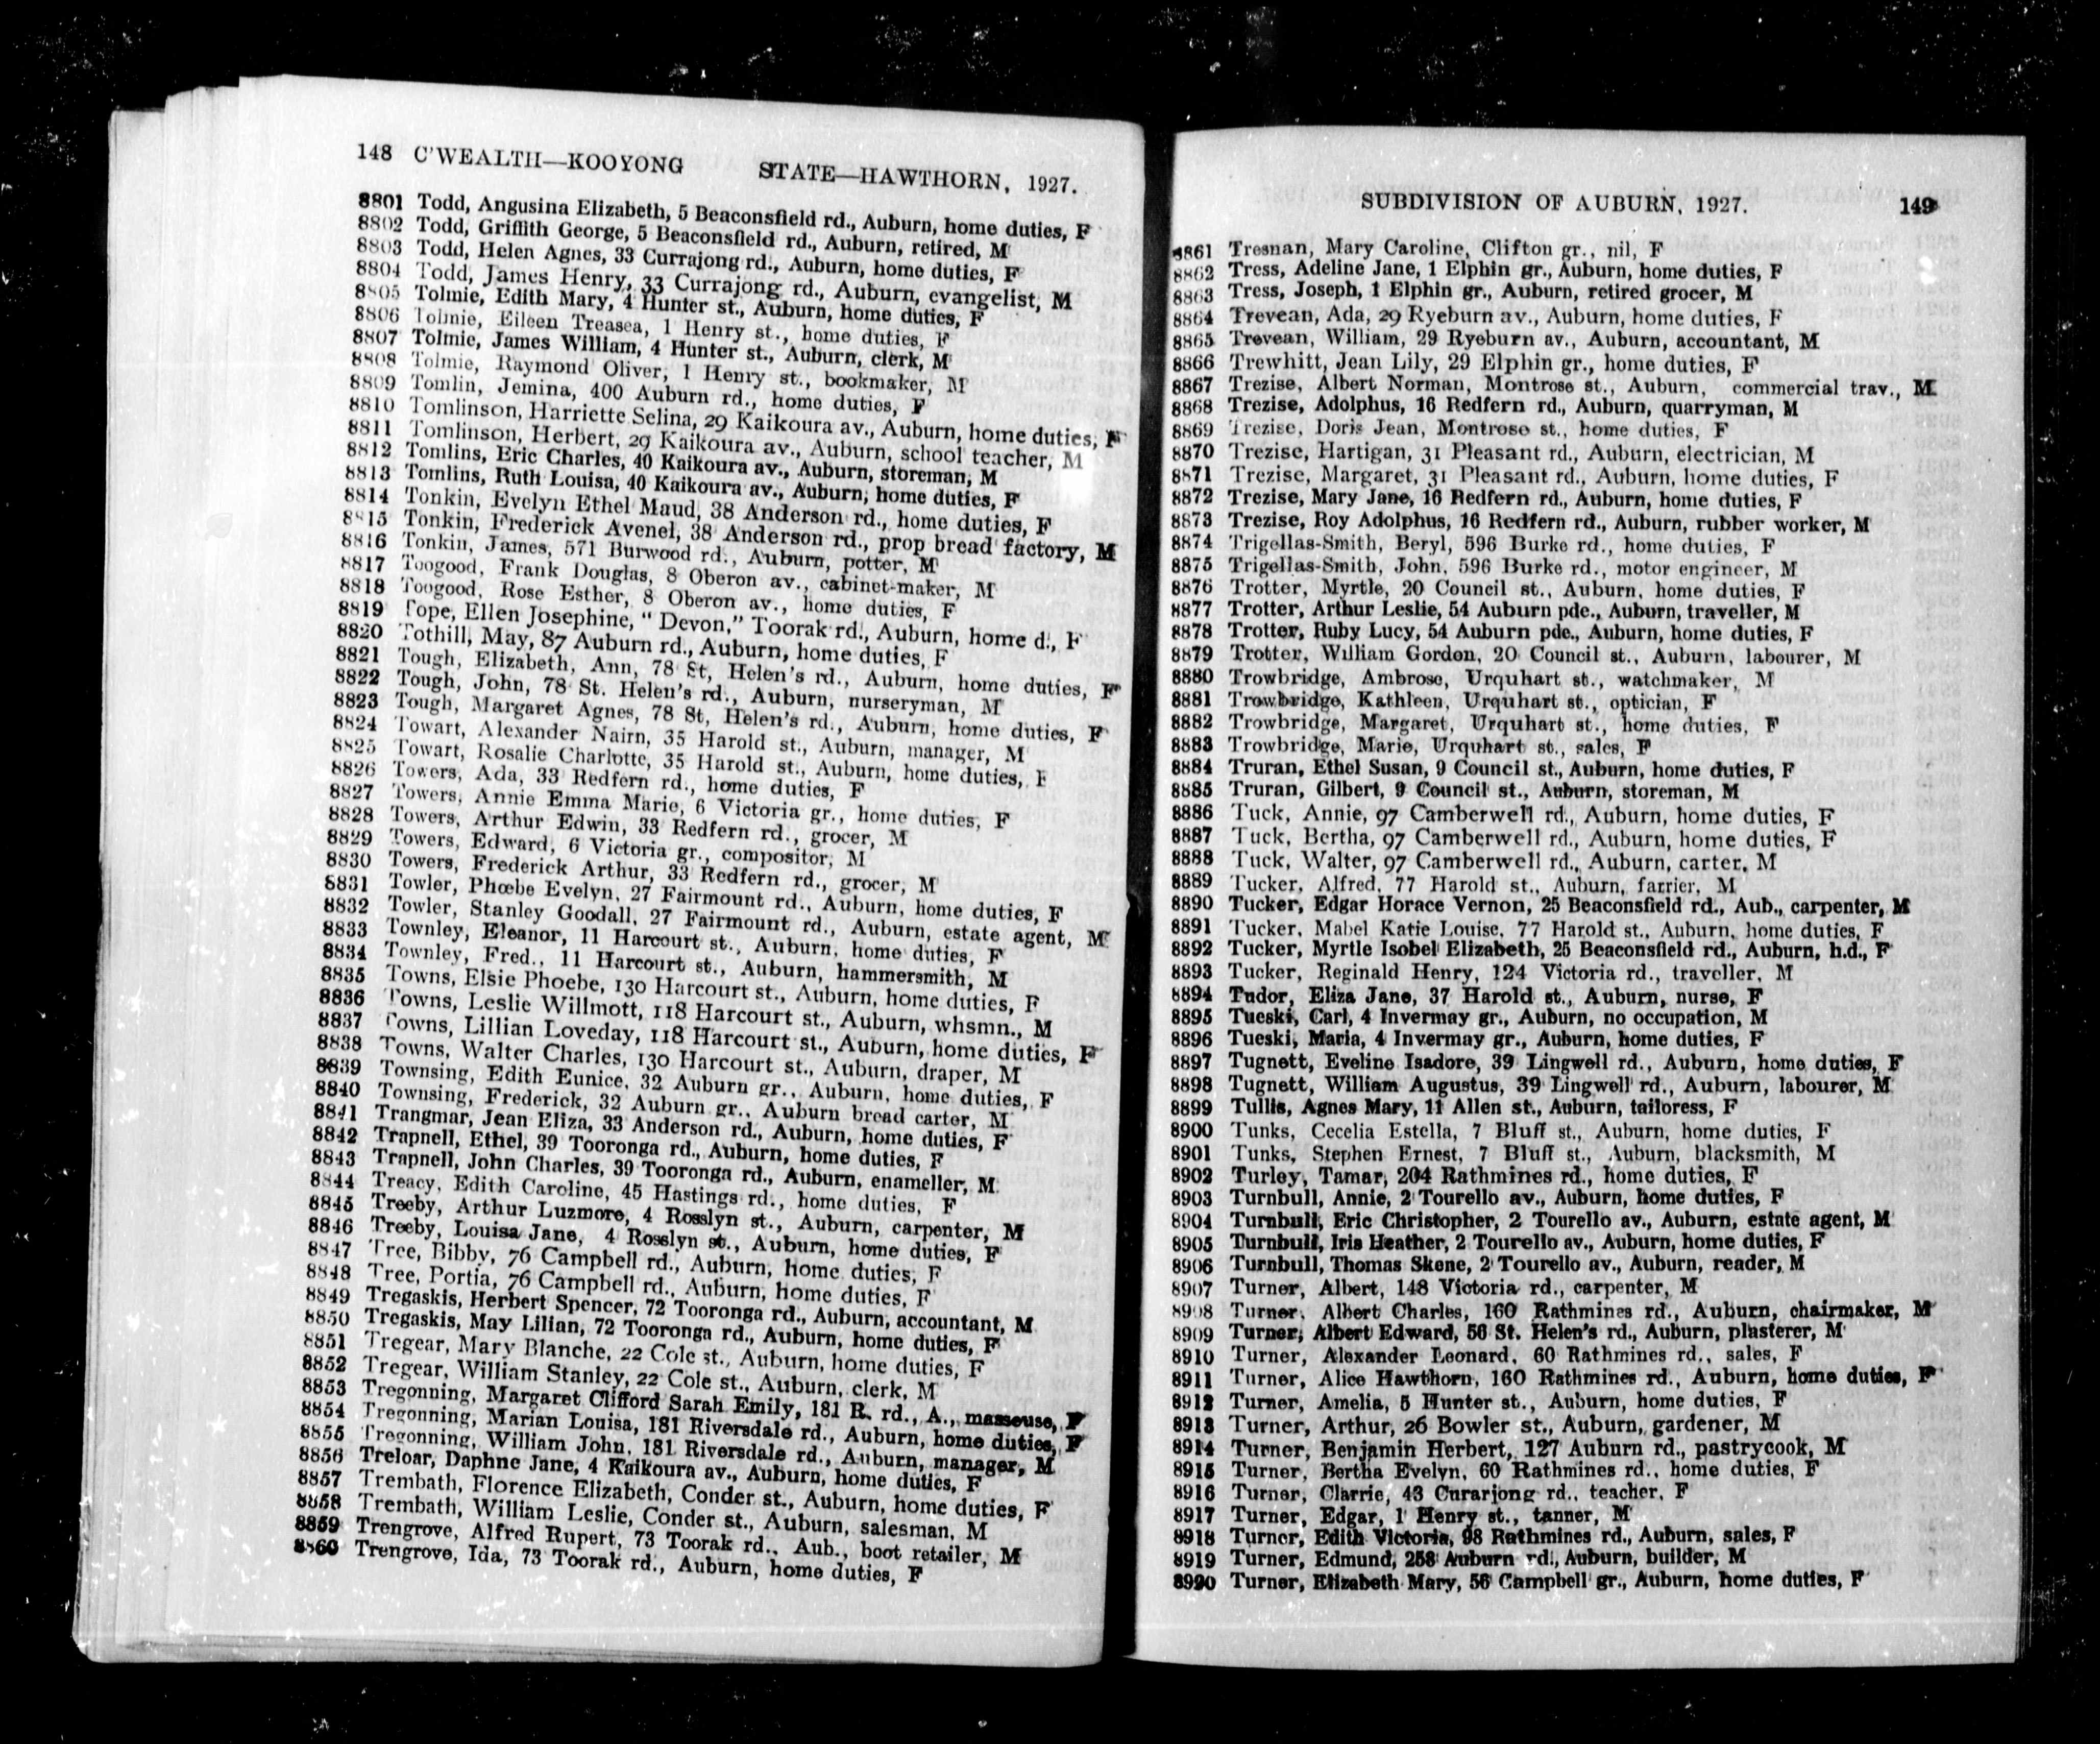 148 C'WEALTH—KOOYONG STATE—HAWTHORN, 1927.
8801 Todd, Angusina Elizabeth, 5 Beaconsfield rd., Auburn, home duties, F
8802 Todd, Griffith George, 5 Beaconsfield rd., Auburn, retired, M
8803 Todd, Helen Agnes, 33 Currajong rd., Auburn, home duties, F
8804 Todd, James Henry, 33 Currajong rd., Auburn, evangelist, M
8805 Tolmie, Edith Mary, 4 Hunter st., Auburn, home duties, F
8806 Tolmie, Eileen Treasea, 1 Henry st., home duties, F
8807 Tolmie, James William, 4 Hunter st., Auburn, clerk, M
8808 Tolmie, Raymond Oliver, 1 Henry st., bookmaker, M
8809 Tomlin, Jemina, 400 Auburn rd., home duties, F
8810 Tomlinson, Harriette Selina, 29 Kaikoura av., Auburn, home duties, F
8811 Tomlinson, Herbert, 29 Kaikoura av., Auburn, school teacher, M
8812 Tomlins, Eric Charles, 40 Kaikoura av., Auburn, storeman, M
8813 Tomlins, Ruth Louisa, 40 Kaikoura av., Auburn, home duties, F
8814 Tonkin, Evelyn Ethel Maud, 38 Anderson rd., home duties, F
8815 Tonkin, Frederick Avenel, 38 Anderson rd., prop bread factory, M
8816 Tonkin, James, 571 Burwood rd., Auburn, potter, M
8817 Toogood, Frank Douglas, 8 Oberon av., cabinet-maker, M
8818 Toogood, Rose Esther, 8 Oberon av., home duties, F
8819 Tope, Ellen Josephine, "Devon," Toorak rd., Auburn, home d., F
8820 Tothill, May, 87 Auburn rd., Auburn, home duties, F
8821 Tough, Elizabeth, Ann, 78 St, Helen's rd., Auburn, home duties, F
8822 Tough, John, 78 St. Helen's rd., Auburn, nurseryman, M
8823 Tough, Margaret Agnes, 78 St, Helen's rd., Auburn, home duties, F
8824 Towart, Alexander Nairn, 35 Harold st., Auburn, manager, M
8825 Towart, Rosalie Charlotte, 35 Harold st., Auburn, home duties, F
8826 Towers, Ada, 33 Redfern rd., home duties, F
8827 Towers, Annie Emma Marie, 6 Victoria gr., home duties, F
8828 Towers, Arthur Edwin, 33 Redfern rd., grocer, M
8829 Towers, Edward, 6 Victoria gr., compositor, M
8830 Towers, Frederick Arthur, 33 Redfern rd., grocer, M
8831 Towler, Phœbe Evelyn, 27 Fairmount rd., Auburn, home duties, F
8832 Towler, Stanley Goodall, 27 Fairmount rd., Auburn, estate agent, M
8833 Townley, Eleanor, 11 Harcourt st., Auburn, home duties, F
8834 Townley, Fred., 11 Harcourt st., Auburn, hammersmith, M
8835 Towns, Elsie Phoebe, 130 Harcourt st., Auburn, home duties, F
8836 Towns, Leslie Willmott, 118 Harcourt st., Auburn, whsmn., M
8837 Towns, Lillian Loveday, 118 Harcourt st., Auburn, home duties, F
8838 Towns, Walter Charles, 130 Harcourt st., Auburn, draper, M
8839 Townsing, Edith Eunice, 32 Auburn gr., Auburn, home duties, F
8840 Townsing, Frederick, 32 Auburn gr., Auburn bread carter, M
8841 Trangmar, Jean Eliza, 33 Anderson rd., Auburn, home duties, F
8842 Trapnell, Ethel, 39 Tooronga rd., Auburn, home duties, F
8843 Trapnell, John Charles, 39 Tooronga rd., Auburn, enameller, M
8844 Treacy, Edith Caroline, 45 Hastings rd., home duties, F
8845 Treeby, Arthur Luzmore, 4 Rosslyn st., Auburn, carpenter, M
8846 Treeby, Louisa Jane, 4 Rosslyn st., Auburn, home duties, F
8847 Tree, Bibby, 76 Campbell rd., Auburn, home duties, F
8848 Tree, Portia, 76 Campbell rd., Auburn, home duties, F
8849 Tregaskis, Herbert Spencer, 72 Tooronga rd., Auburn, accountant, M
8850 Tregaskis, May Lilian, 72 Tooronga rd., Auburn, home duties, F
8851 Tregear, Mary Blanche, 22 Cole st., Auburn, home duties, F
8852 Tregear, William Stanley, 22 Cole st., Auburn, clerk, M
8853 Tregonning, Margaret Clifford Sarah Emily, 181 R. rd., A., masseuse, F
8854 Tregonning, Marian Louisa, 181 Riversdale rd., Auburn, home duties, F
8855 Tregonning, William John, 181 Riversdale rd., Auburn, manager, M
8856 Treloar, Daphne Jane, 4 Kaikoura av., Auburn, home duties, F
8857 Trembath, Florence Elizabeth, Conder st., Auburn, home duties, F
8858 Trembath, William Leslie, Conder st., Auburn, salesman, M
8859 Trengrove, Alfred Rupert, 73 Toorak rd., Aub., boot retailer, M
8860 Trengrove, Ida, 73 Toorak rd., Auburn, home duties, F
SUBDIVISION OF AUBURN, 1927. 149
8861 Tresnan, Mary Caroline, Clifton gr., nil, F
8862 Tress, Adeline Jane, 1 Elphin gr., Auburn, home duties, F
8863 Tress, Joseph, 1 Elphin gr., Auburn, retired grocer, M
8864 Trevean, Ada, 29 Ryeburn av., Auburn, home duties, F
8865 Trevean, William, 29 Ryeburn av., Auburn, accountant, M
8866 Trewhitt, Jean Lily, 29 Elphin gr., home duties, F
8867 Trezise, Albert Norman, Montrose st., Auburn, commercial trav., M
8868 Trezise, Adolphus, 16 Redfern rd., Auburn, quarryman, M
8869 Trezise, Doris Jean, Montrose st., home duties, F
8870 Trezise, Hartigan, 31 Pleasant rd., Auburn, electrician, M
8871 Trezise, Margaret, 31 Pleasant rd., Auburn, home duties, F
8872 Trezise, Mary Jane, 16 Redfern rd., Auburn, home duties, F
8873 Trezise, Roy Adolphus, 16 Redfern rd., Auburn, rubber worker, M
8874 Trigellas-Smith, Beryl, 596 Burke rd., home duties, F
8875 Trigellas-Smith, John, 596 Burke rd., motor engineer, M
8876 Trotter, Myrtle, 20 Council st., Auburn, home duties, F
8877 Trotter, Arthur Leslie, 54 Auburn pde., Auburn, traveller, M
8878 Trotter, Ruby Lucy, 54 Auburn pde., Auburn, home duties, F
8879 Trotter, William Gordon, 20 Council st., Auburn, labourer, M
8880 Trowbridge, Ambrose, Urquhart st., watchmaker, M
8881 Trowbridge, Kathleen, Urquhart st., optician, F
8882 Trowbridge, Margaret, Urquhart st., home duties, F
8883 Trowbridge, Marie, Urquhart st., sales, F
8884 Truran, Ethel Susan, 9 Council st., Auburn, home duties, F
8885 Truran, Gilbert, 9 Council st., Auburn, storeman, M
8886 Tuck, Annie, 97 Camberwell rd., Auburn, home duties, F
8887 Tuck, Bertha, 97 Camberwell rd., Auburn, home duties, F
8888 Tuck, Walter, 97 Camberwell rd., Auburn, carter, M
8889 Tucker, Alfred, 77 Harold st., Auburn, farrier, M
8890 Tucker, Edgar Horace Vernon, 25 Beaconsfield rd., Aub., carpenter, M
8891 Tucker, Mabel Katie Louise, 77 Harold st., Auburn, home duties, F
8892 Tucker, Myrtle Isobel Elizabeth, 25 Beaconsfield rd., Auburn, h.d., F
8893 Tucker, Reginald Henry, 124 Victoria rd., traveller, M
8894 Tudor, Eliza Jane, 37 Harold st., Auburn, nurse, F
8895 Tueski, Carl, 4 Invermay gr., Auburn, no occupation, M
8896 Tueski, Maria, 4 Invermay gr., Auburn, home duties, F
8897 Tugnett, Eveline Isadore, 39 Lingwell rd., Auburn, home duties, F
8898 Tugnett, William Augustus, 39 Lingwell rd., Auburn, labourer, M
8899 Tullis, Agnes Mary, 11 Allen st., Auburn, tailoress, F
8900 Tunks, Cecelia Estella, 7 Bluff st., Auburn, home duties, F
8901 Tunks, Stephen Ernest, 7 Bluff st., Auburn, blacksmith, M
8902 Turley, Tamar, 204 Rathmines rd., home duties, F
8903 Turnbull, Annie, 2 Tourello av., Auburn, home duties, F
8904 Turnbull, Eric Christopher, 2 Tourello av., Auburn, estate agent, M
8905 Turnbull, Iris Heather, 2 Tourello av., Auburn, home duties, F
8906 Turnbull, Thomas Skene, 2 Tourello av., Auburn, reader, M
8907 Turner, Albert, 148 Victoria rd., carpenter, M
8908 Turner, Albert Charles, 160 Rathmines rd., Auburn, chairmaker, M
8909 Turner, Albert Edward, 56 St. Helen's rd., Auburn, plasterer, M
8910 Turner, Alexander Leonard, 60 Rathmines rd., sales, F
8911 Turner, Alice Hawthorn, 160 Rathmines rd., Auburn, home duties, F
8912 Turner, Amelia, 5 Hunter st., Auburn, home duties, F
8913 Turner, Arthur, 26 Bowler st., Auburn, gardener, M
8914 Turner, Benjamin Herbert, 127 Auburn rd., pastrycook, M
8915 Turner, Bertha Evelyn, 60 Rathmines rd., home duties, F
8916 Turner, Clarrie, 43 Curarjong rd., teacher, F
8917 Turner, Edgar, 1 Henry st., tanner, M
8918 Turner, Edith Victoria, 98 Rathmines rd., Auburn, sales, F
8919 Turner, Edmund, 258 Auburn rd., Auburn, builder, M
8920 Turner, Elizabeth Mary, 56 Campbell gr., Auburn, home duties, F